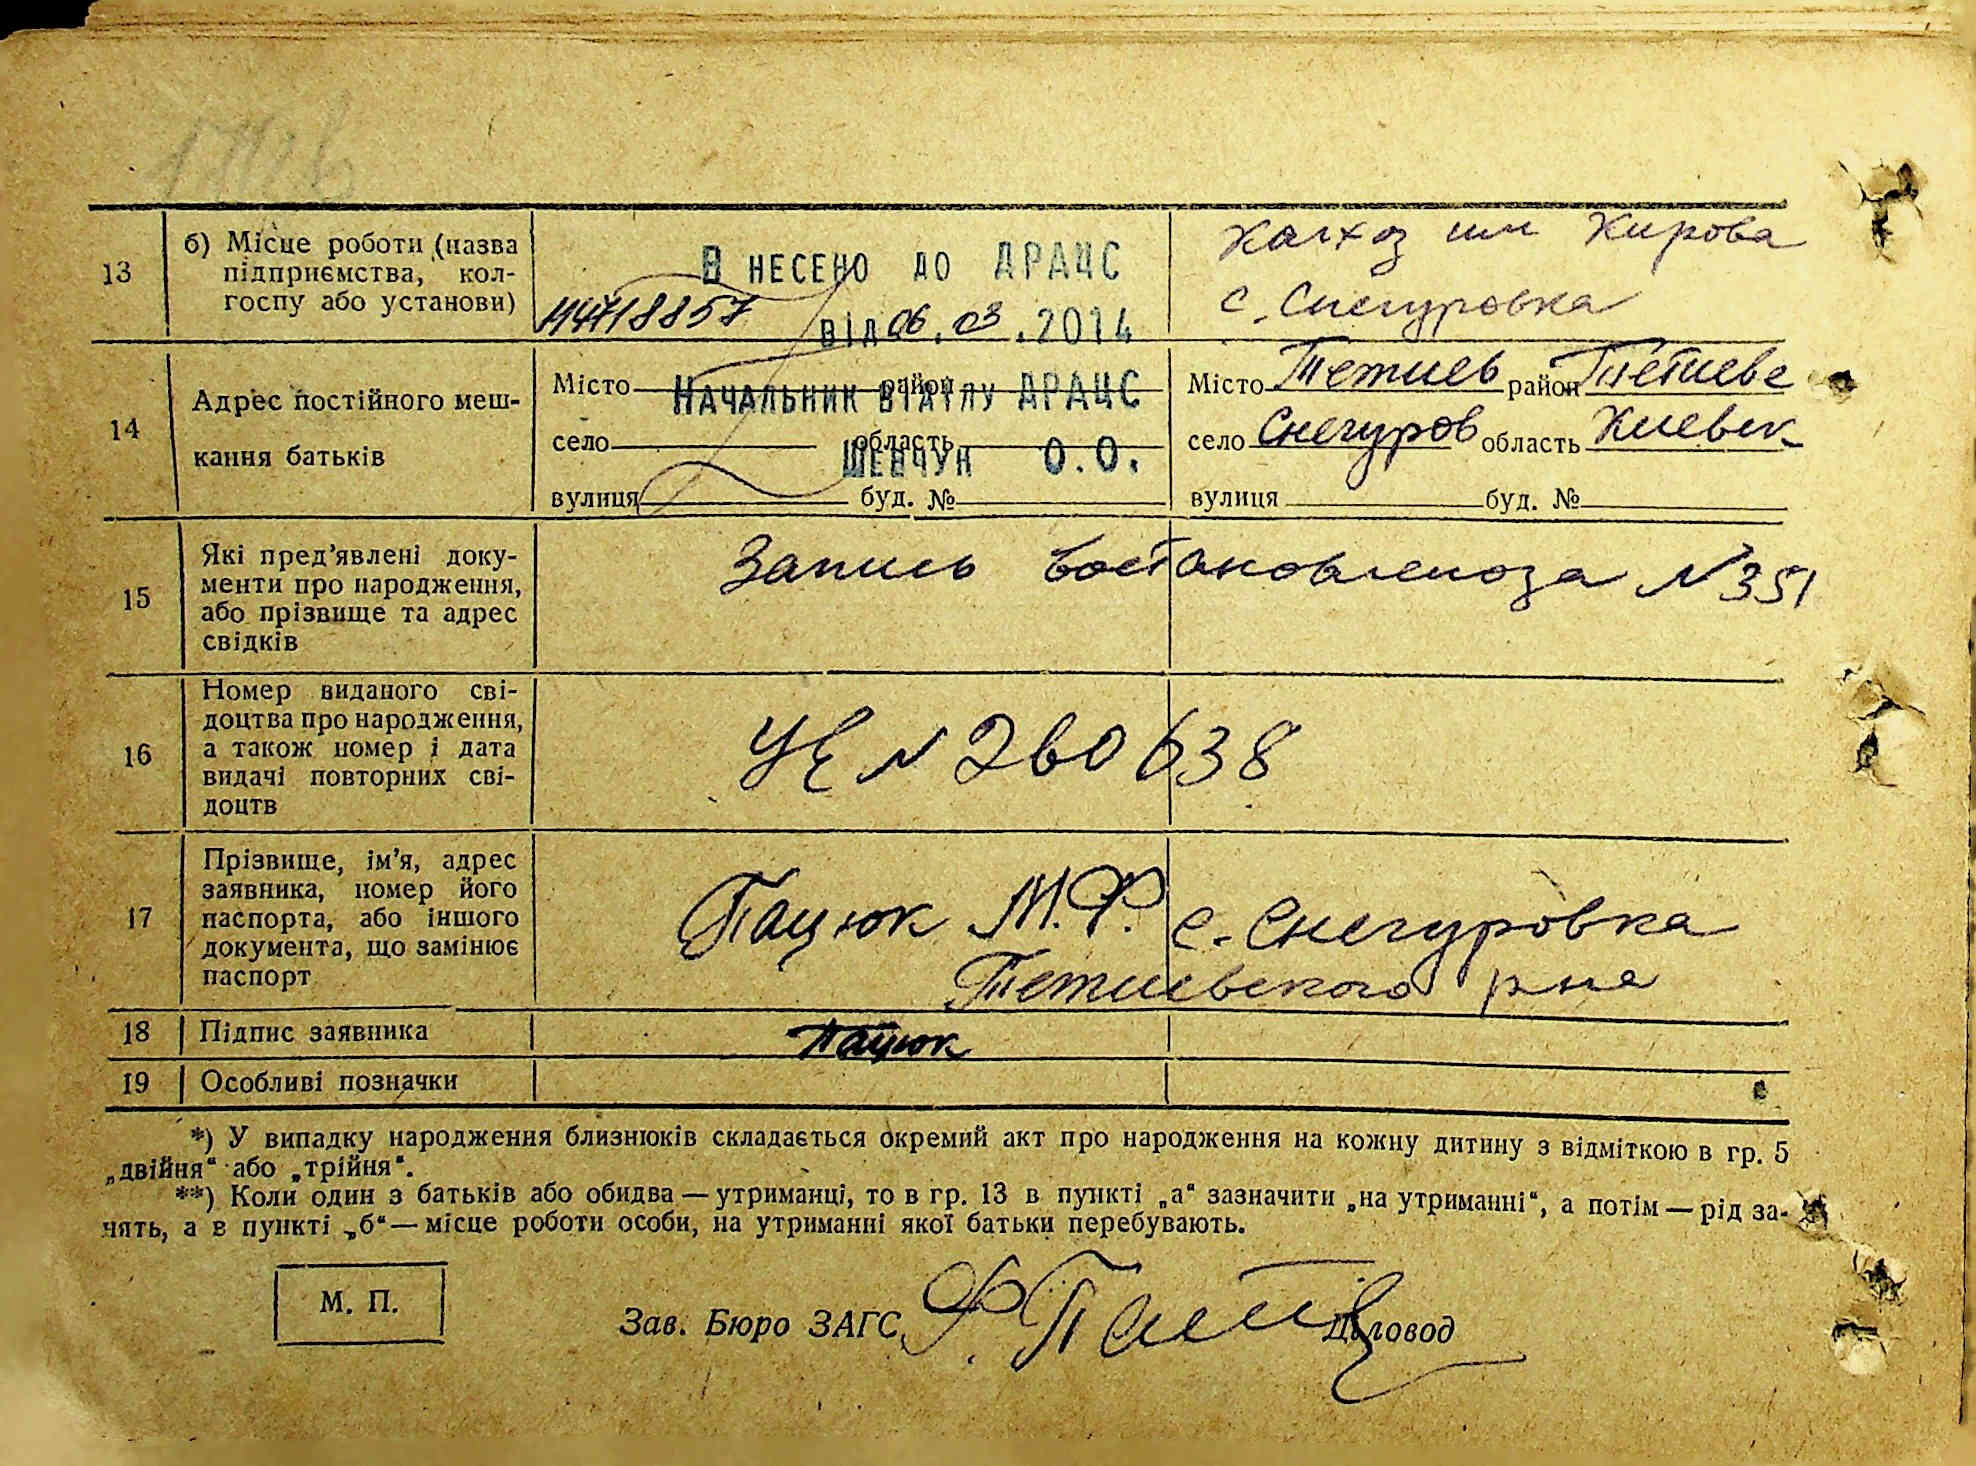 13
б) Місце роботи (назва
підприємства, кол-
госпу або установи)
В НЕСЕНО ДО ДРАЦС
від 06.03.2014
Колхоз им Кирова
с. Снегуровка
14
Адрес постійного меш-
кання батьків
Місто район
НАЧАЛЬНИК ВІДДІЛУ ДРАЦС
село область
ШЕВЧУК О.О.
вулиця буд. №
Місто Тетиев район Тетиевс
село Снегуров область Киевск
вулиця буд. №
15
Які пред'явлені доку-
менти про народження,
або прізвище та адрес
свідків
Запись N 351
16
Номер виданого сві-
доцтва про народження,
а також номер і дата
видачі повторних сві-
доцтв
УЕ N 260638
17
Прізвище, ім'я, адрес
заявника, номер його
паспорта, або іншого
документа, що замінює
паспорт
Пацюк М.Ф. с. Снегуровка
Тетиевского р-на
18 Підпис заявника
Пацюк
19 Особливі позначки
*) У випадку народження близнюків складається окремий акт про народження на кожну дитину з відміткою в гр. 5
„двійня“ або „трійня“.
**) Коли один з батьків або обидва — утриманці, то в гр. 13 в пункті „а“ зазначити „на утриманні“, а потім — рід за-
нять, а в пункті „б“ — місце роботи особи, на утриманні якої батьки перебувають.
М. П.
Зав. Бюро ЗАГС
Діловод